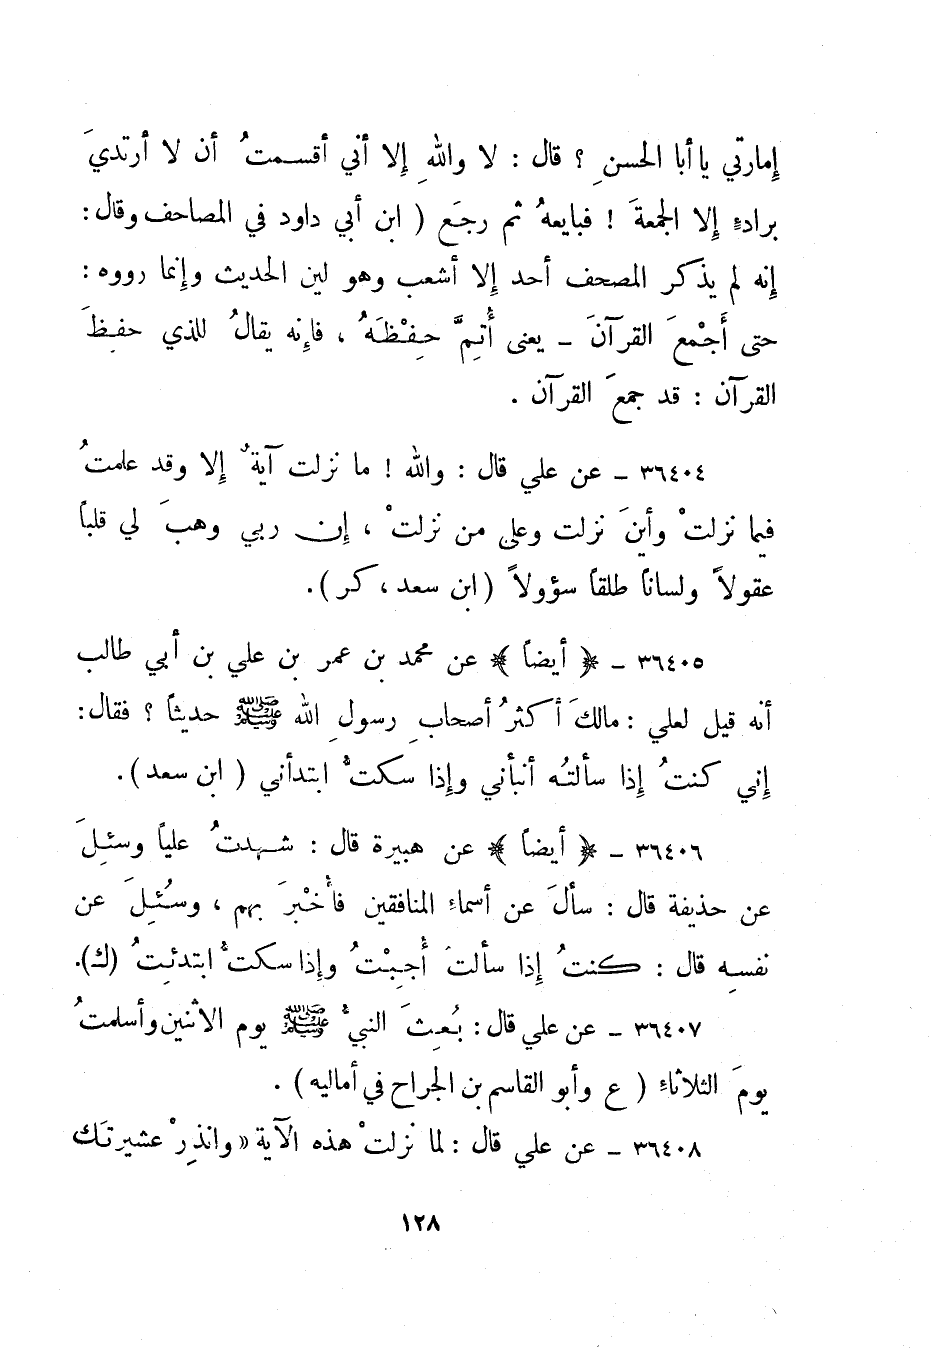 إمارتي يا أبا الحسنِ ؟ قال : لا واللهِ إلا أني أقسمتُ أن لا أرتديَ
برداءٍ إلا الجمعةَ ! فبايعهُ ثم رجع ( ابن أبي داود في المصاحف وقال :
إنه لم يذكر المصحف أحد إلا أشعب وهو لين الحديث وإنما رووه :
حتى أَجْمعَ القرآنَ ـ يعنى أُتِمَّ حِفْظَهُ ، فإنه يقالُ للذي حفِظَ
القرآن : قد جمعَ القرآن .
٣٦٤٠٤ ـ عن علي قال : والله ! ما نزلت آيةٌ إلا وقد علمتُ
فيما نزلتْ وأينَ نزلت وعلى من نزلتْ ، إن ربي وهبَ لي قلباً
عقولاً ولساناً طلقاً سؤولاً ( ابن سعد ، كر ) .
٣٦٤٠٥ ـ ﴿ أيضاً ﴾ عن محمد بن عمر بن علي بن أبي طالب
أنه قيل لعلي : مالكَ أكثرُ أصحابِ رسولِ الله ﷺ حديثاً ؟ فقال :
إني كنتُ إذا سألتُه أنبأني وإذا سكتُّ ابتدأني ( ابن سعد ) .
٣٦٤٠٦ ـ ﴿ أيضاً ﴾ عن هبيرة قال : شهدتُ علياً وسئلَ
عن حذيفة قال : سألَ عن أسماءِ المنافقين فأُخْبرَ بهم ، وسُئِلَ عن
نفسِه قال : كنتُ إذا سألتُ أُجِبْتُ وإذا سكتُّ ابتدئِتُ ( ك ) .
٣٦٤٠٧ ـ عن علي قال : بُعِثَ النبيُّ ﷺ يوم الاثنين وأسلمتُ
يومَ الثلاثاءِ ( ع وأبو القاسم بن الجراح في أماليه ) .
٣٦٤٠٨ ـ عن علي قال : لما نزلتْ هذه الآية « وانذِرْ عشيرتَك
١٢٨